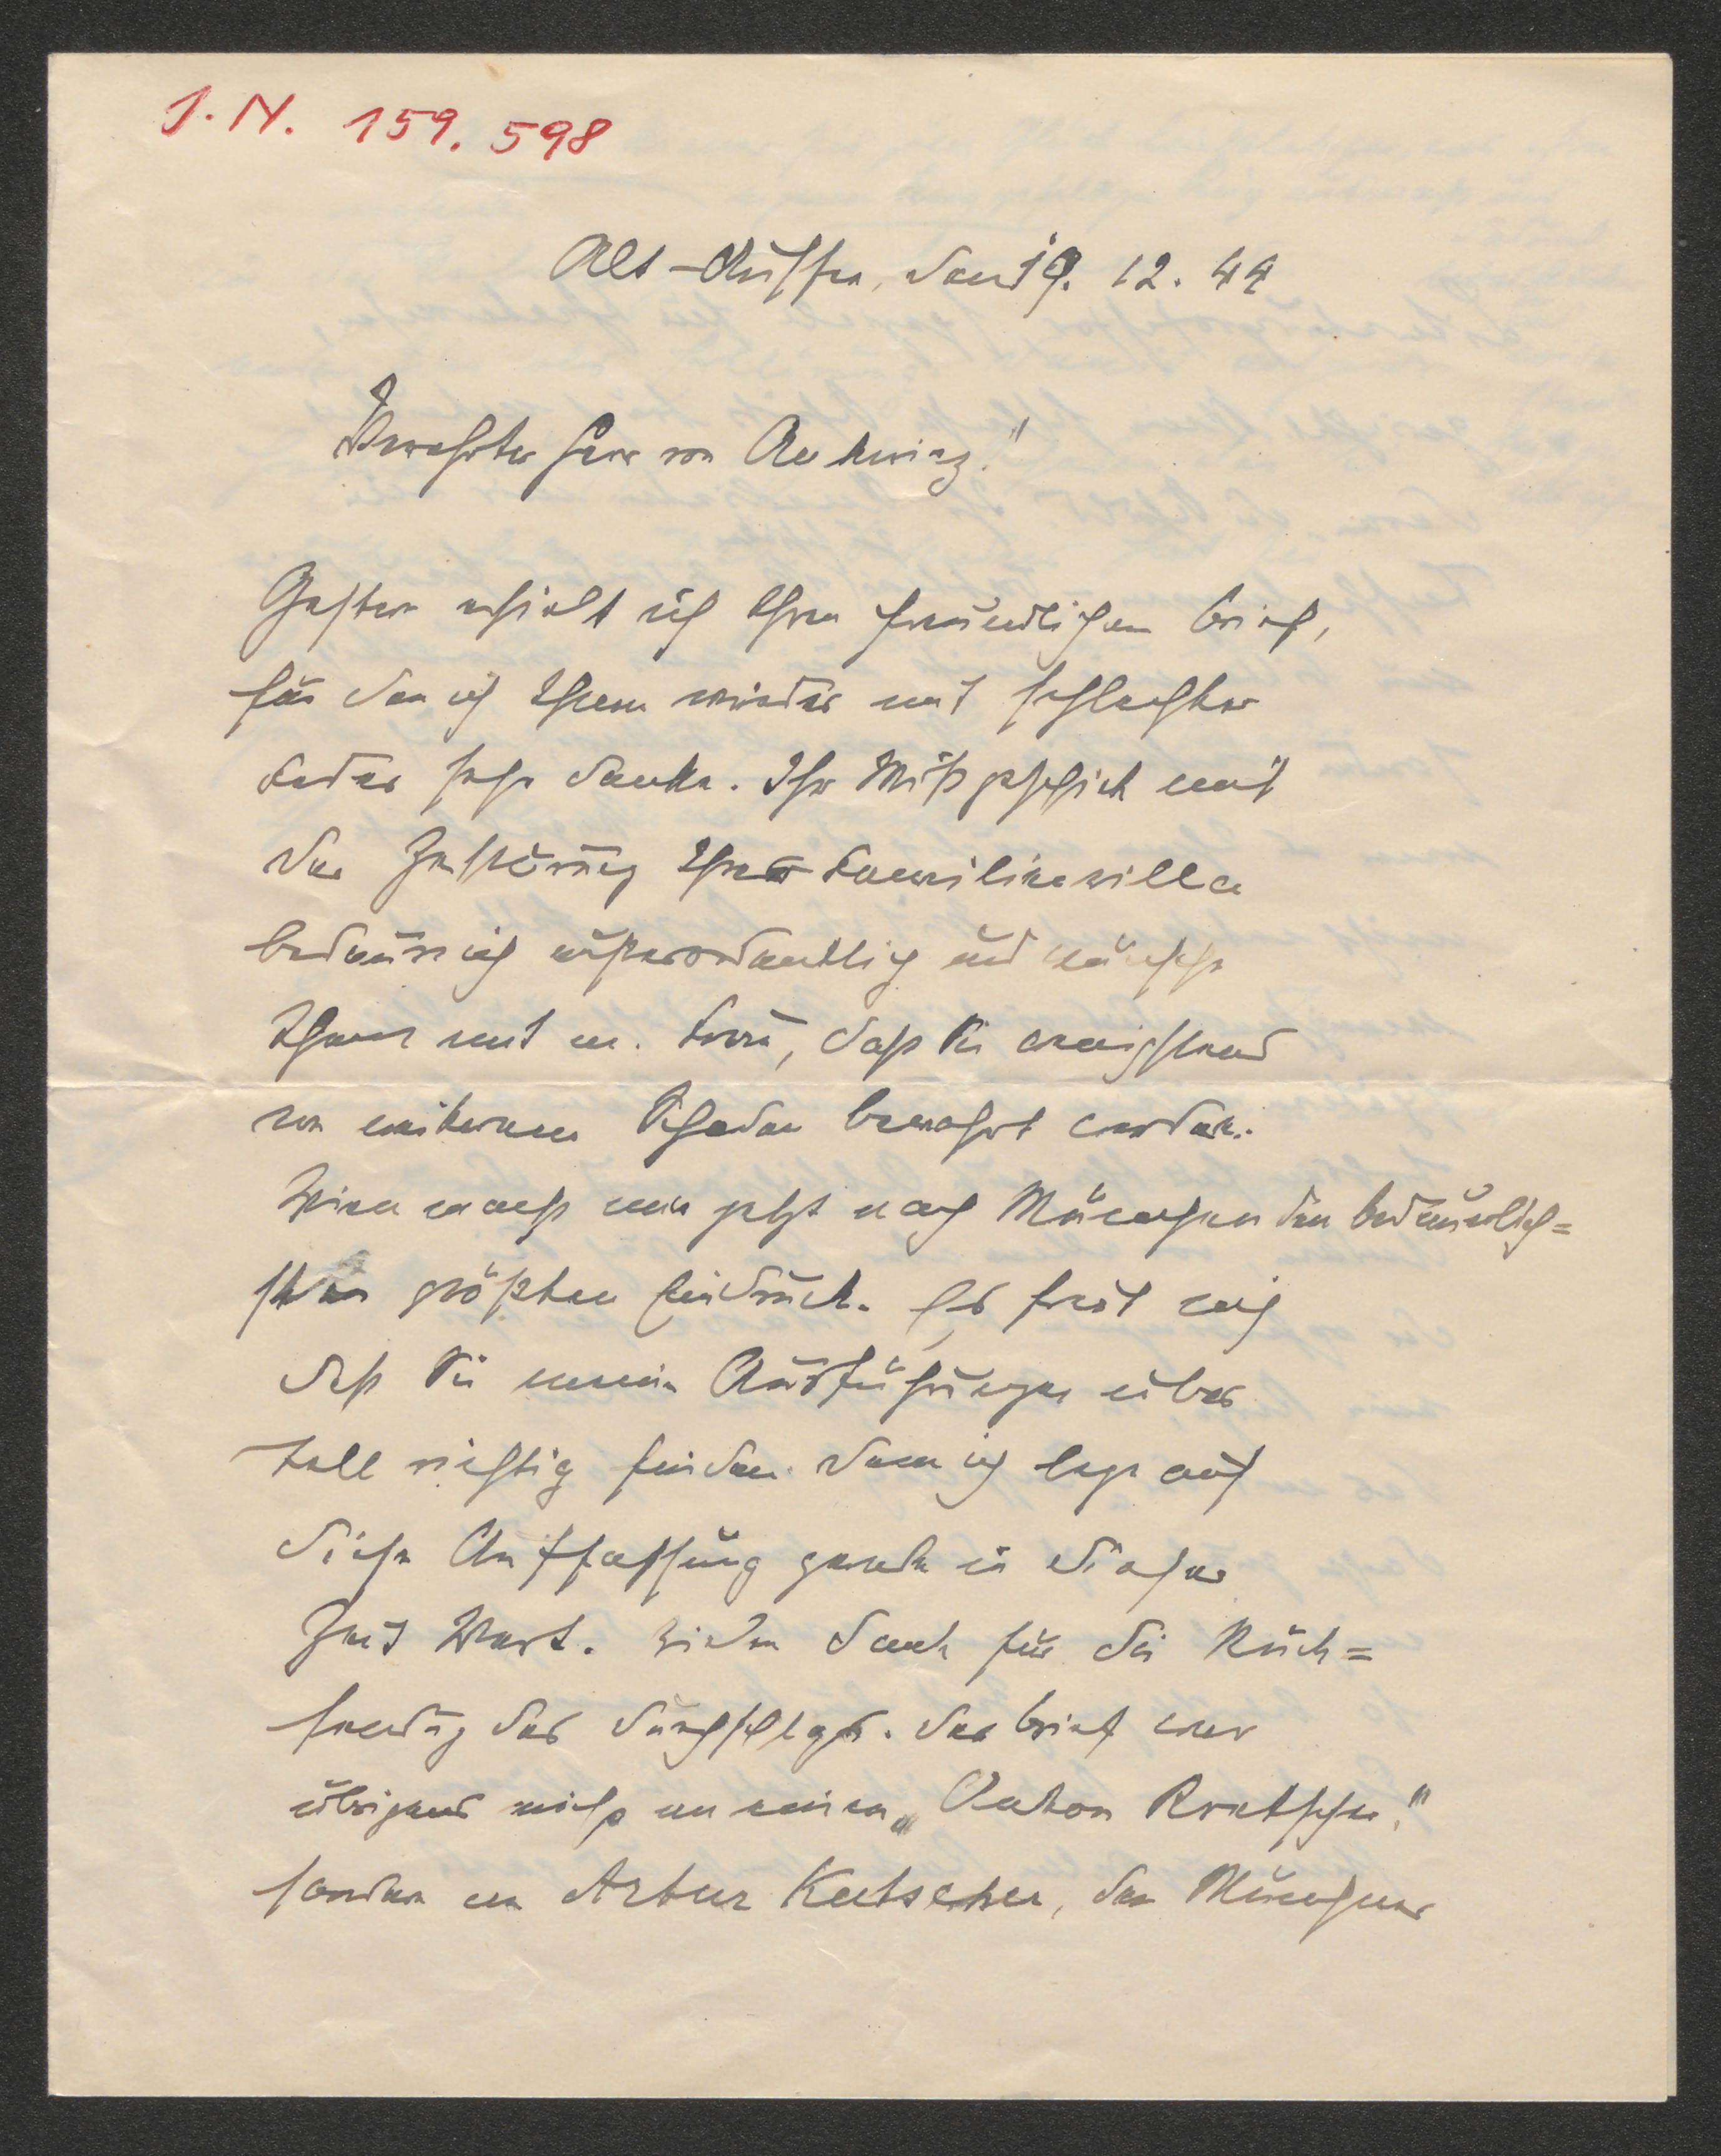 J. N. 159.598
Alt-Aussee, den 19. 12. 44
Verehrter Herr von
Gestern erhielt ich Ihren freundlichen Brief,
für den ich Ihnen wieder mit schlechter
Feder sehr danke. Ihr Missgeschick mit
der Zerstörung Ihrer Familienvilla
bedaure ich außerordentlich und wünsche
Ihnen mit m. Frau, daß Sie wenigstens
von weiterem Schaden bewahrt werden.
Wien macht mir jetzt nach München den bedauerlich=
sten größten Eindruck. Es freut mich
daß Sie meine Ausführungen über
Tell richtig finden denn ich lege auf
diese Auffassung gerade in dieser
Zeit Wert. Vielen Dank für die Rück=
sendung des Durchschlages. Der Brief war
übrigens nicht an einen „Anton
sondern an Artur Kutscher, den Münchner